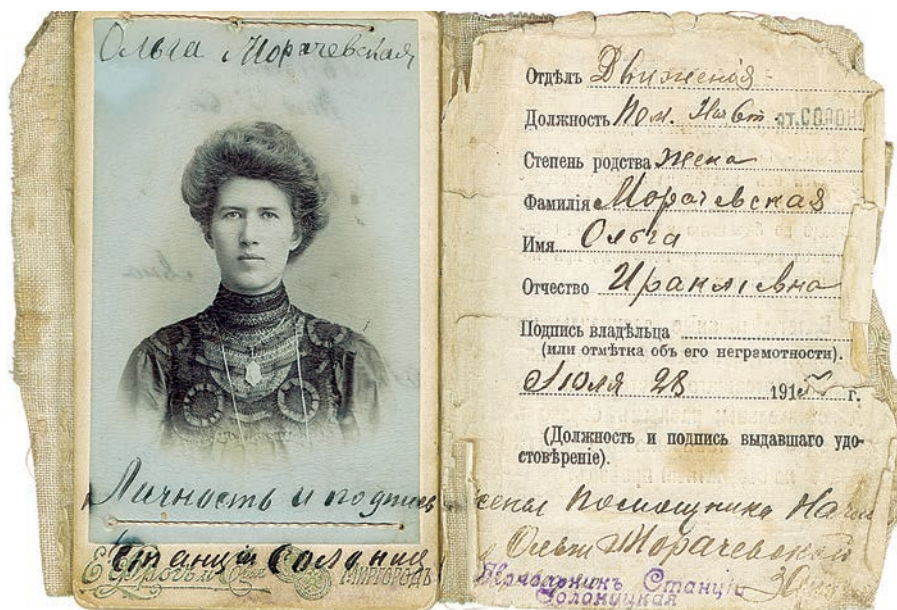 Ольга Морачевская
Личность и подпись
Станціи Солоница
МИРГОРОДЪ
Отдѣлъ Движенія
Должность Пом. Нач. ст.
Степень родства жена
Фамилія Морачевская
Имя Ольга
Отчество Ираклiевна
Подпись владѣльца
(или отмѣтка объ его неграмотности).
Июля 28 191 г.
(Должность и подпись выдавшаго удо-
стовѣреніе).
жены Помощника Начал
Ольги Морачевской
Начальникъ Станціи
Солоницкая